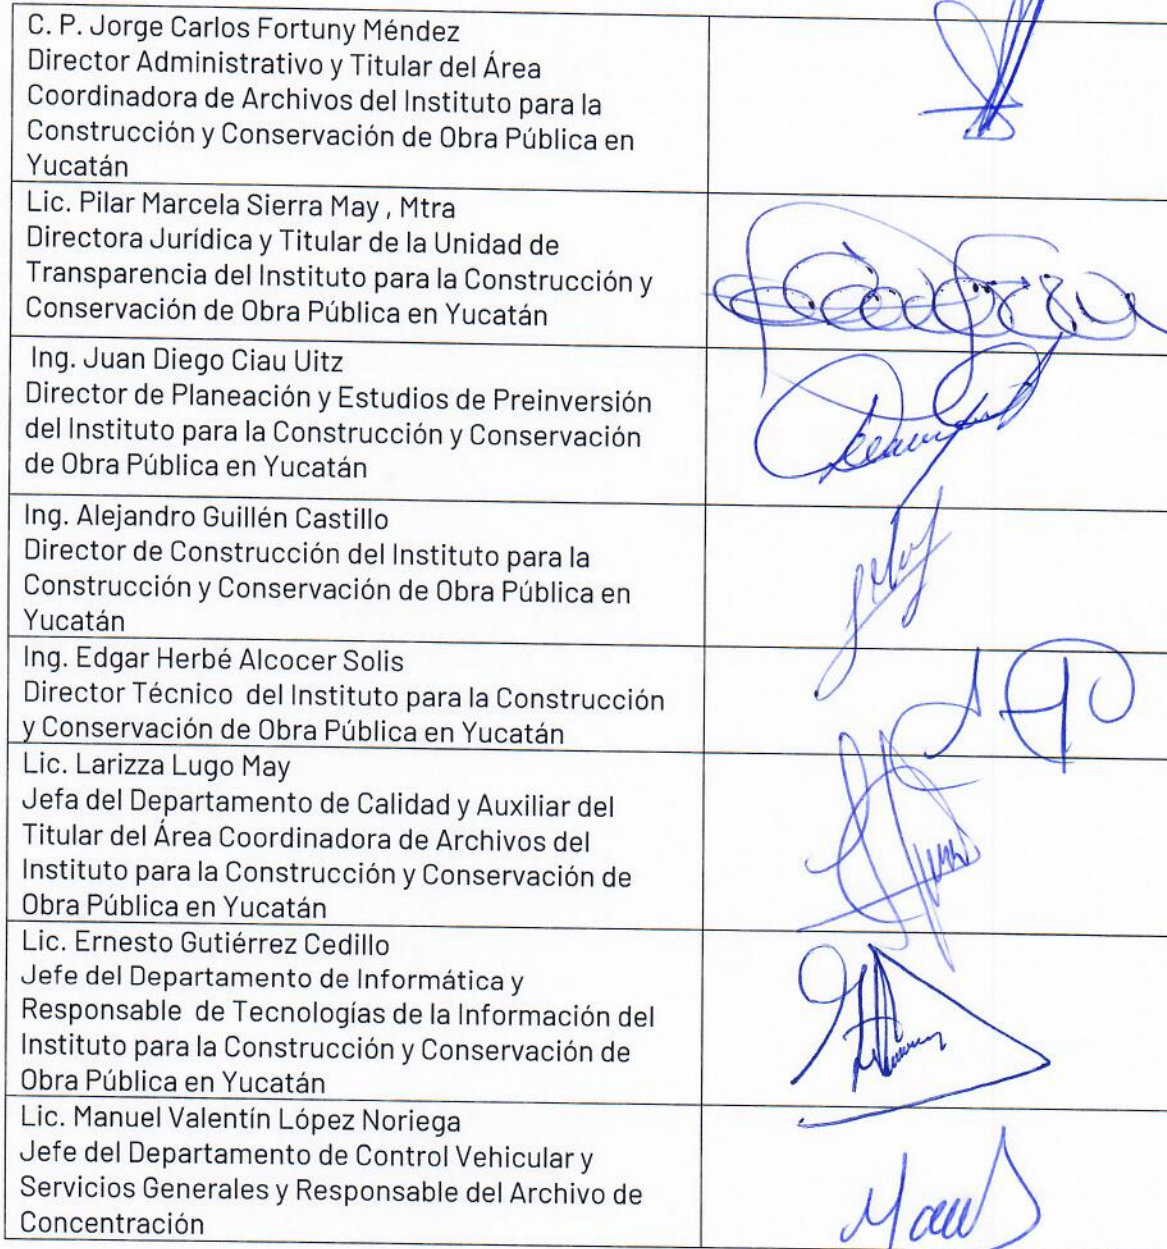 C. P. Jorge Carlos Fortuny Méndez
Director Administrativo y Titular del Área
Coordinadora de Archivos del Instituto para la
Construcción y Conservación de Obra Pública en
Yucatán
Lic. Pilar Marcela Sierra May , Mtra
Directora Jurídica y Titular de la Unidad de
Transparencia del Instituto para la Construcción y
Conservación de Obra Pública en Yucatán
Ing. Juan Diego Ciau Uitz
Director de Planeación y Estudios de Preinversión
del Instituto para la Construcción y Conservación
de Obra Pública en Yucatán
Ing. Alejandro Guillén Castillo
Director de Construcción del Instituto para la
Construcción y Conservación de Obra Pública en
Yucatán
Ing. Edgar Herbé Alcocer Solis
Director Técnico del Instituto para la Construcción
y Conservación de Obra Pública en Yucatán
Lic. Larizza Lugo May
Jefa del Departamento de Calidad y Auxiliar del
Titular del Área Coordinadora de Archivos del
Instituto para la Construcción y Conservación de
Obra Pública en Yucatán
Lic. Ernesto Gutiérrez Cedillo
Jefe del Departamento de Informática y
Responsable de Tecnologías de la Información del
Instituto para la Construcción y Conservación de
Obra Pública en Yucatán
Lic. Manuel Valentín López Noriega
Jefe del Departamento de Control Vehicular y
Servicios Generales y Responsable del Archivo de
Concentración